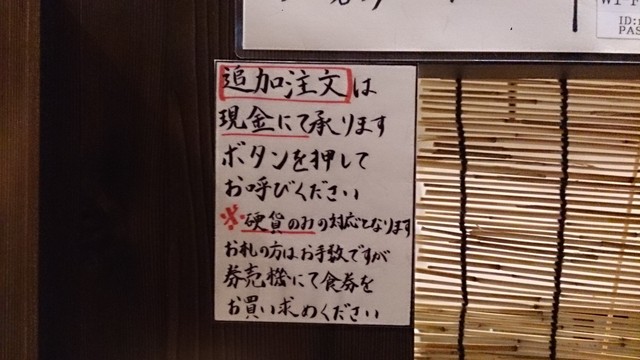 追加注文は
現金にて承ります
ボタンを押して
お呼びください
※硬貨のみの対応となります
お札の方はお手数ですが
券売機にて食券を
お買い求めください
ID:
PAS